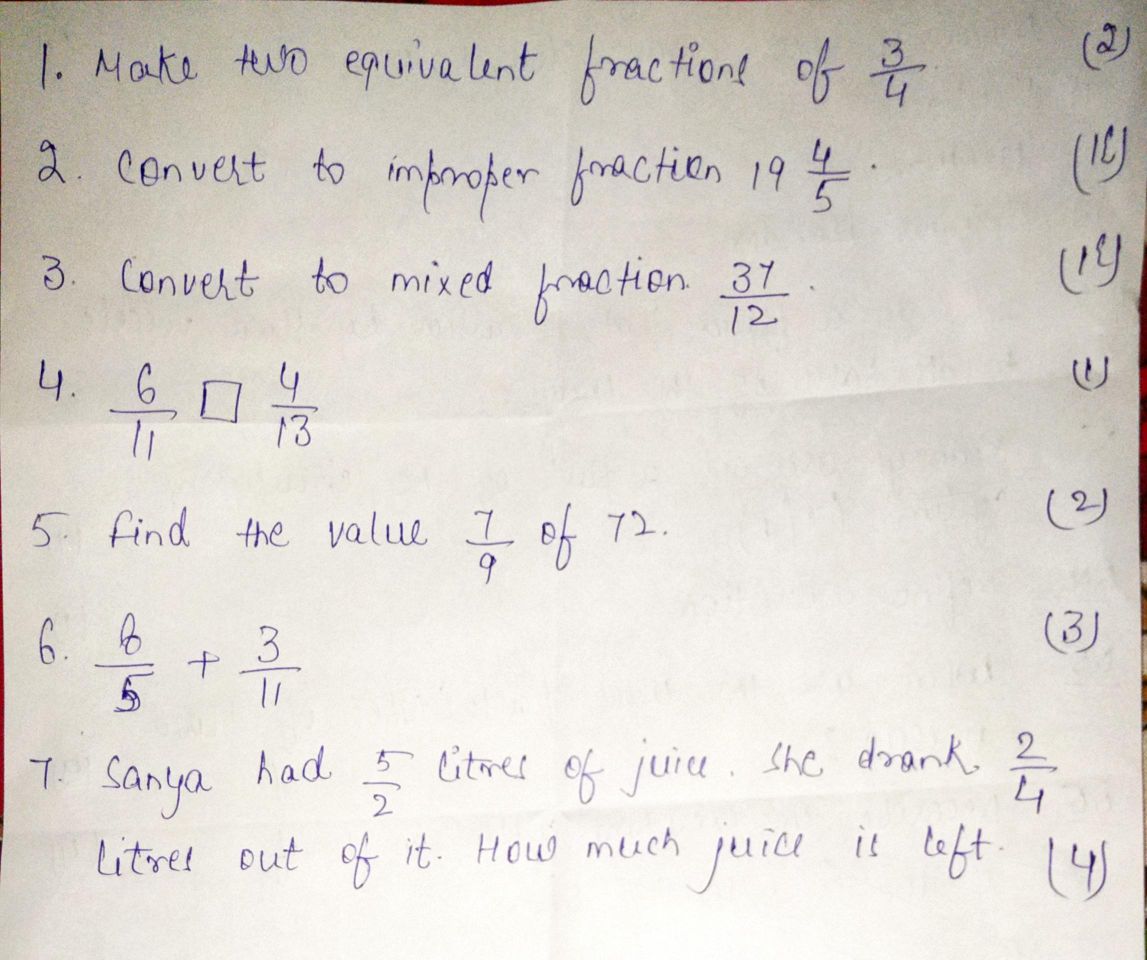 1. Make two equivalent fractions of 3/4. (2)
2. Convert to improper fraction 19 4/5. (1½)
3. Convert to mixed fraction 37/12. (1½)
4. 6/11 □ 4/13 (1)
5. Find the value 7/9 of 72. (2)
6. 8/5 + 3/11 (3)
7. Sanya had 5/2 litres of juice. She drank 2/4
litres out of it. How much juice is left. (4)